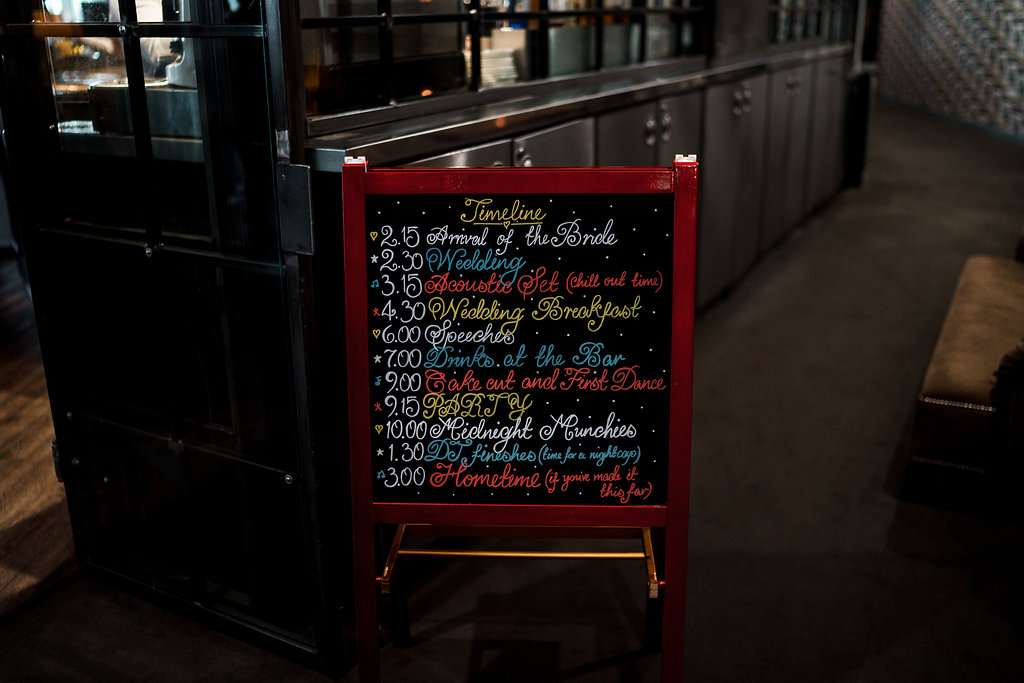 Timeline
2.15 Arrival of the Bride
2.30 Wedding
3.15 Acoustic Set (chill out time)
4.30 Wedding Breakfast
6.00 Speeches
7.00 Drinks at the Bar
9.00 Cake cut and First Dance
9.15 PARTY
10.00 Midnight Munchies
1.30 DJ finishes (time for a nightcap)
3.00 Hometime (if you've made it
this far)